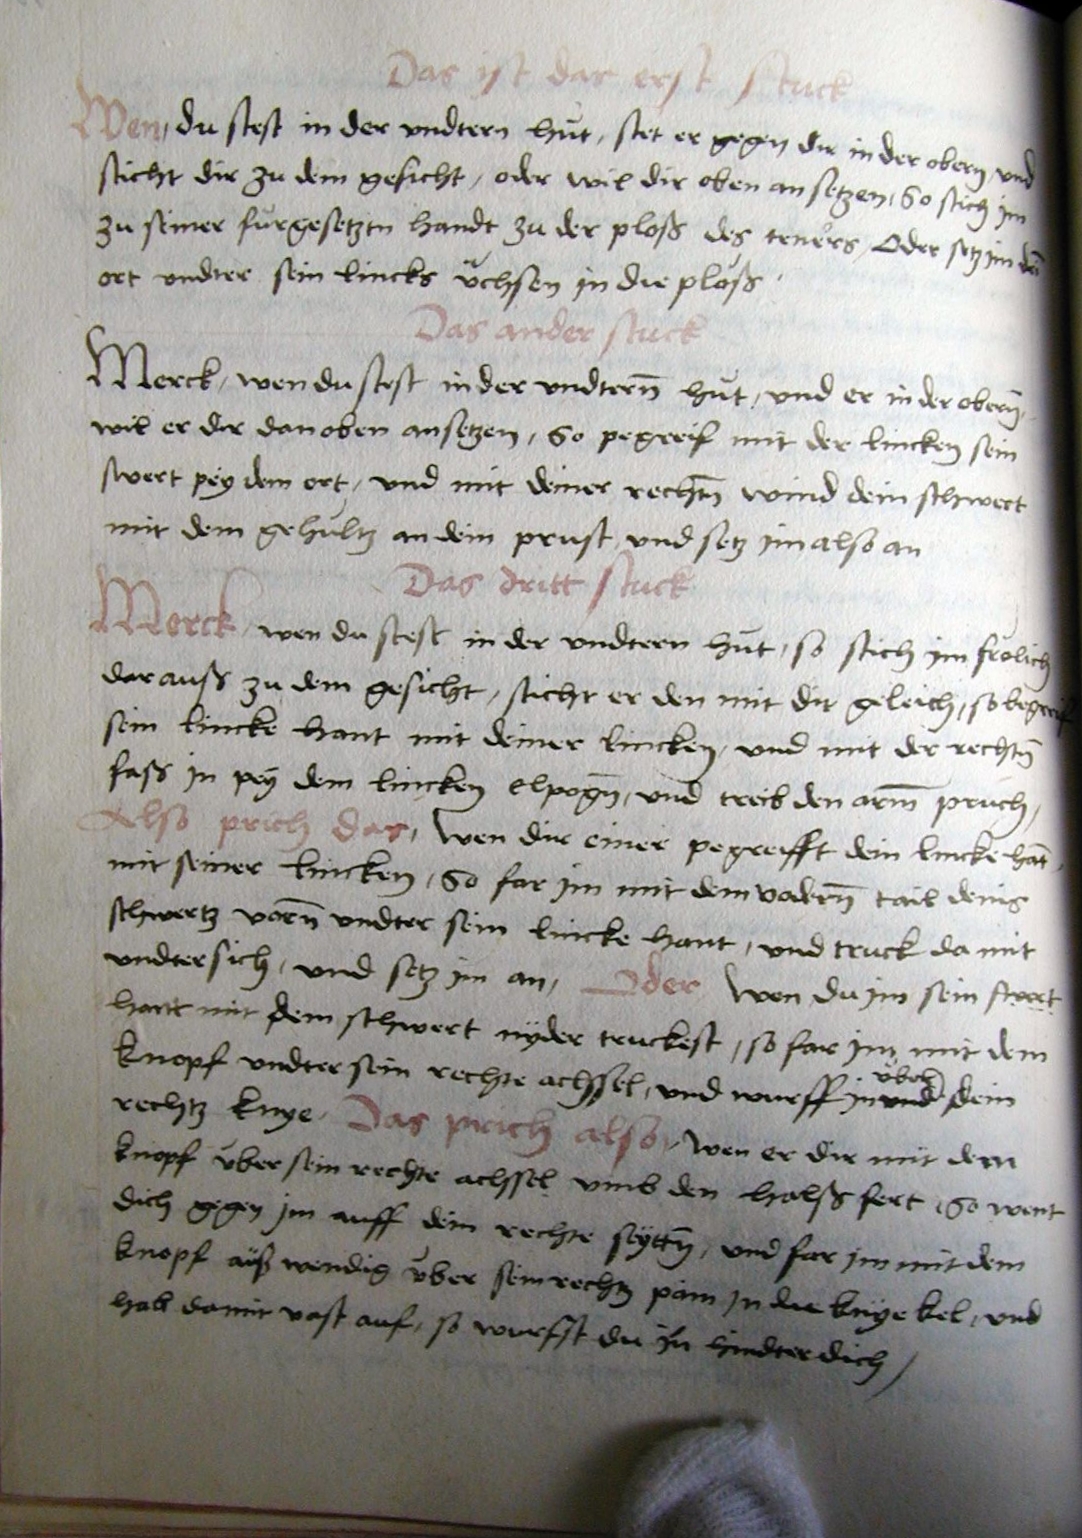 Das ist das erst stuck
Wen, du stest in der vndtern hůt, stet er gegen dir in der obern, vnd
sticht dir zu dem gesicht, oder wil dir oben an setzen, So stich im
zu seiner fürgesetztn handt zu der ploß des teners, Oder setz im dē
ort vndter sein lincks üchsen in die plöß
Das ander stuck
Merck, wen du stest in der vndterñ hůt, vnd er in der oberñ,
wil er dir dan oben ansetzen, So pegreif mit der lincken sein
swert pey dem ort, vnd mit deiner rechtñ wind dein schwert
mit dem gehültz an dein prust vnd setz im also an
Das dritt stuck
Merck wen du stest in der vndtern hůt, so stich im frölich
darauß zu dem gesicht, sticht er den mit dir geleich, so begreif
sein lincke hant mit deiner lincken, vnd mit der rechtñ
fass in pey dem lincken elpogñ, vnd treib den arm̄ pruch,
Also prich das, Wen dir einer pegreifft dein lincke hāt,
mit seiner lincken, So far im mit dem voderñ tail deins
schwertz vorñ vndter sein lincke hant, vnd truck da mit
vndtersich, vnd setz im an, Oder Wen du im sein swert
hartt mit dem schwert nÿder truckest, so far im mit dem
knopf vndter sein rechte achssel, vnd wurff in vnd über dein
rechtz knye, Das prich also, Wen er dir mit dem
knopf über sein rechte achssel vmb den halß fert, So went
dich gegen im auff dein rechte seyttñ, vnd far im mit dem
knopf auß wendig über sein rechtz pain in die knÿe kel, vnd
hab damit vast auf, so wurfst du in hindter dich,